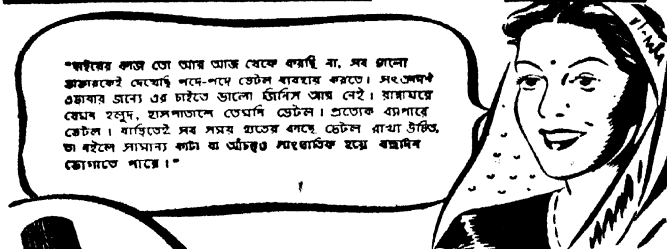 "ধাইয়ের কাজ তো আর আজ থেকে করছি না, সব ভালো
ডাক্তারকেই দেখেছি পদে-পদে ডেটল ব্যবহার করতে। সংক্রমণ
এড়াবার জন্যে এর চাইতে ভালো জিনিস আর নেই। রান্নাঘরে
যেমন হলুদ, হাসপাতালে তেমনি ডেটল। প্রত্যেক ব্যাপারে
ডেটল। বাড়িতেই সব সময় হাতের কাছে ডেটল রাখা উচিত,
তা নইলে সামান্য কাটা বা আঁচড়ও সাংঘাতিক হয়ে বহুদিন
ভোগাতে পারে।"